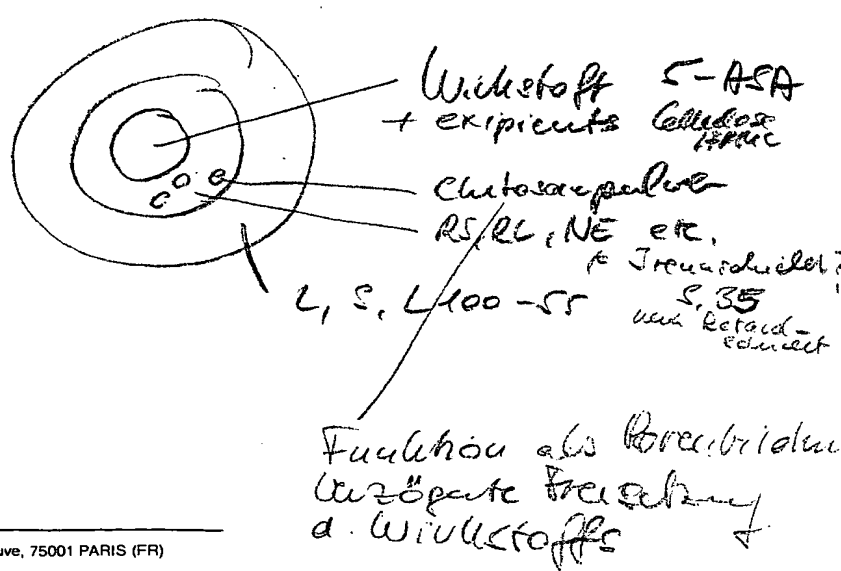 Wirkstoff 5-ASA
+ exipients Cellulose
HPMC
Chitosanpulver
RS, RL, NE etc.
L, S, L100-55 S. 35
Funktion als Porenbildner
Verzögerte Freisetzung
d. Wirkstoffs
uve, 75001 PARIS (FR)